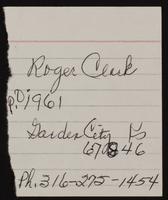 Roger Clark
p.d 1961
Garden City Ks
67846
Ph. 316-275-1454